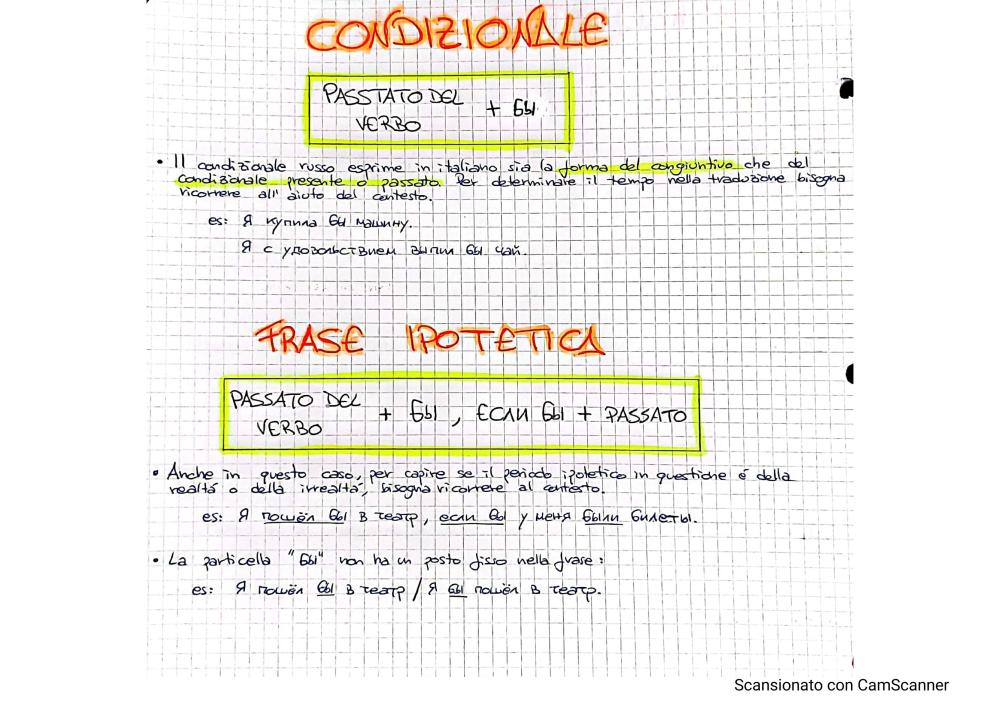 CONDIZIONALE
PASSTATO DEL VERBO + бы
• Il condizionale russo esprime in italiano sia la forma del congiuntivo che del
condizionale presente o passato. Per determinare il tempo nella traduzione bisogna
ricorrere all' aiuto del contesto.
es: Я купила бы машину.
Я с удовольствием выпил бы чай.
FRASE IPOTETICA
PASSATO DEL VERBO + бы, ЕСЛИ бы + PASSATO
• Anche in questo caso, per capire se il periodo ipotetico in questione é della
realtá o della irrealtá, bisogna ricorrere al contesto.
es: Я пошёл бы в театр, если бы у меня были билеты.
• La particella "бы" non ha un posto fisso nella frase:
es: Я пошёл бы в театр / Я бы пошёл в театр.
Scansionato con CamScanner